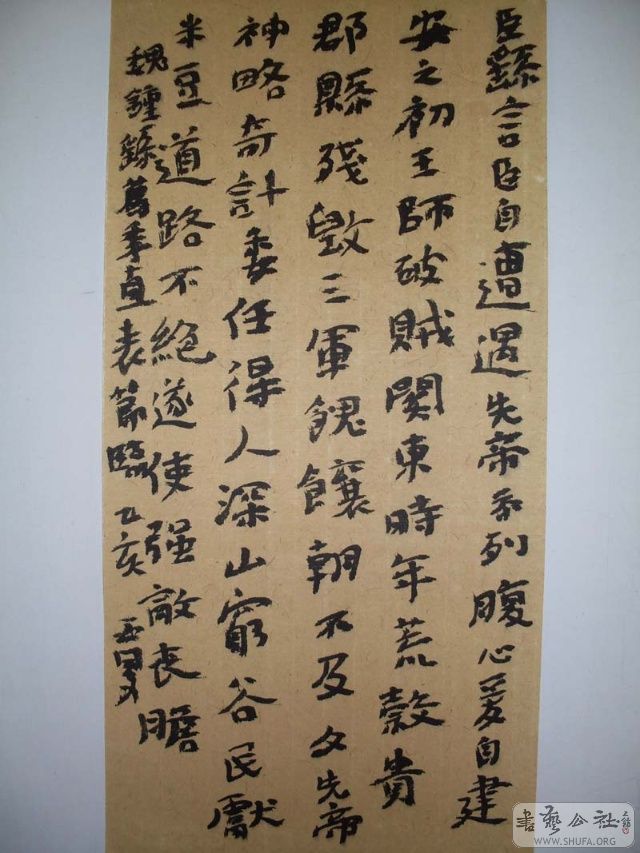 臣繇言臣自遭遇先帝忝列腹心爰自建
安之初王師破賊關東時年荒穀貴
郡縣殘毀三軍餽饟朝不及夕先帝
神略奇計委任得人深山窮谷民獻
米豆道路不絕遂使强敵喪膽
魏鍾繇薦季直表節臨乙亥
書藝公社
WWW.SHUFA.ORG